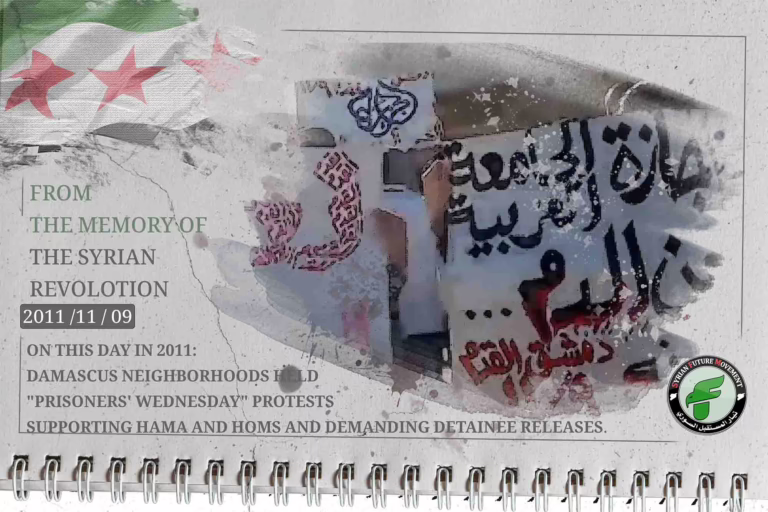 FROM
THE MEMORY OF
THE SYRIAN
REVOLOTION
2011 /11 / 09
ON THIS DAY IN 2011:
DAMASCUS NEIGHBORHOODS HELD
"PRISONERS' WEDNESDAY" PROTESTS
SUPPORTING HAMA AND HOMS AND DEMANDING DETAINEE RELEASES.
الجامعة
العربية
الدم ...
دمشق القدم
SYRIAN FUTURE MOVEMENT
تيار المستقبل السوري